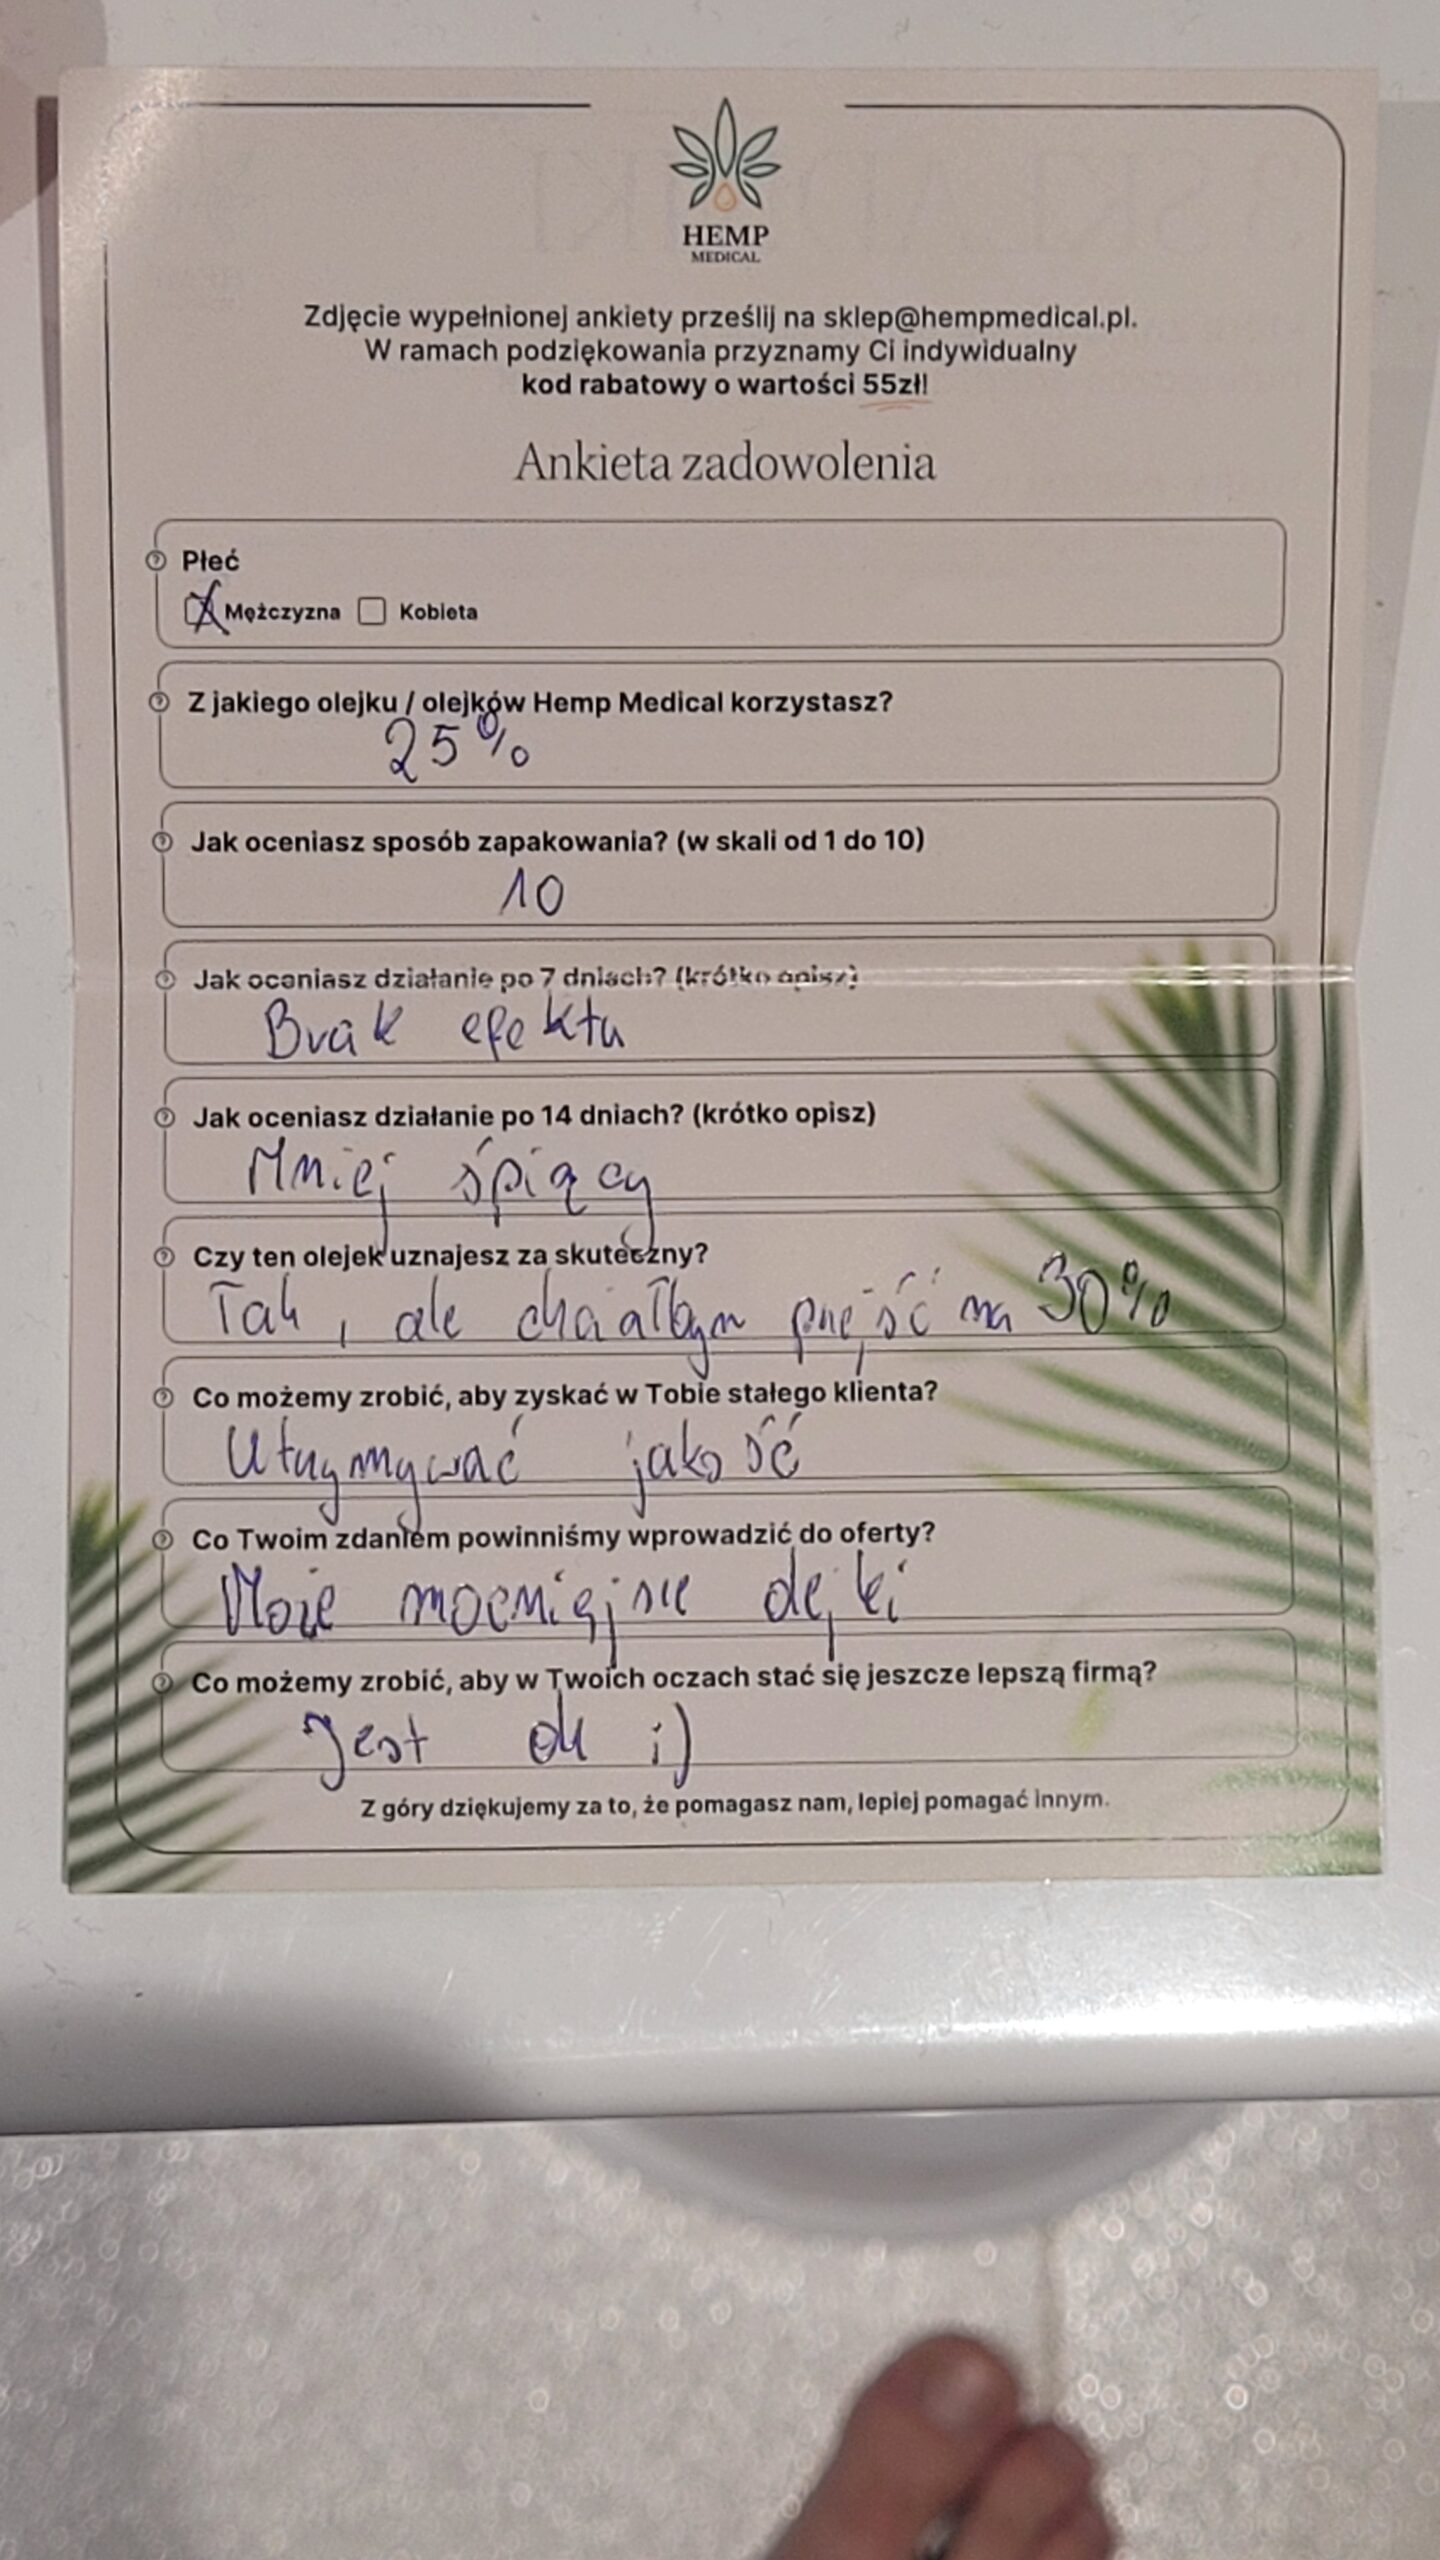 HEMP
MEDICAL
Zdjęcie wypełnionej ankiety prześlij na sklep@hempmedical.pl.
W ramach podziękowania przyznamy Ci indywidualny
kod rabatowy o wartości 55zł!
Ankieta zadowolenia
Płeć
Mężczyzna Kobieta
Z jakiego olejku / olejków Hemp Medical korzystasz?
25%
Jak oceniasz sposób zapakowania? (w skali od 1 do 10)
10
Jak oceniasz działanie po 7 dniach? (krótko opisz)
Brak efektu
Jak oceniasz działanie po 14 dniach? (krótko opisz)
Mniej śpiący
Czy ten olejek uznajesz za skuteczny?
Tak, ale chciałbym przejść na 30%
Co możemy zrobić, aby zyskać w Tobie stałego klienta?
Utrzymywać jakość
Co Twoim zdaniem powinniśmy wprowadzić do oferty?
Może mocniejsze olejki
Co możemy zrobić, aby w Twoich oczach stać się jeszcze lepszą firmą?
Jest ok ;)
Z góry dziękujemy za to, że pomagasz nam, lepiej pomagać innym.